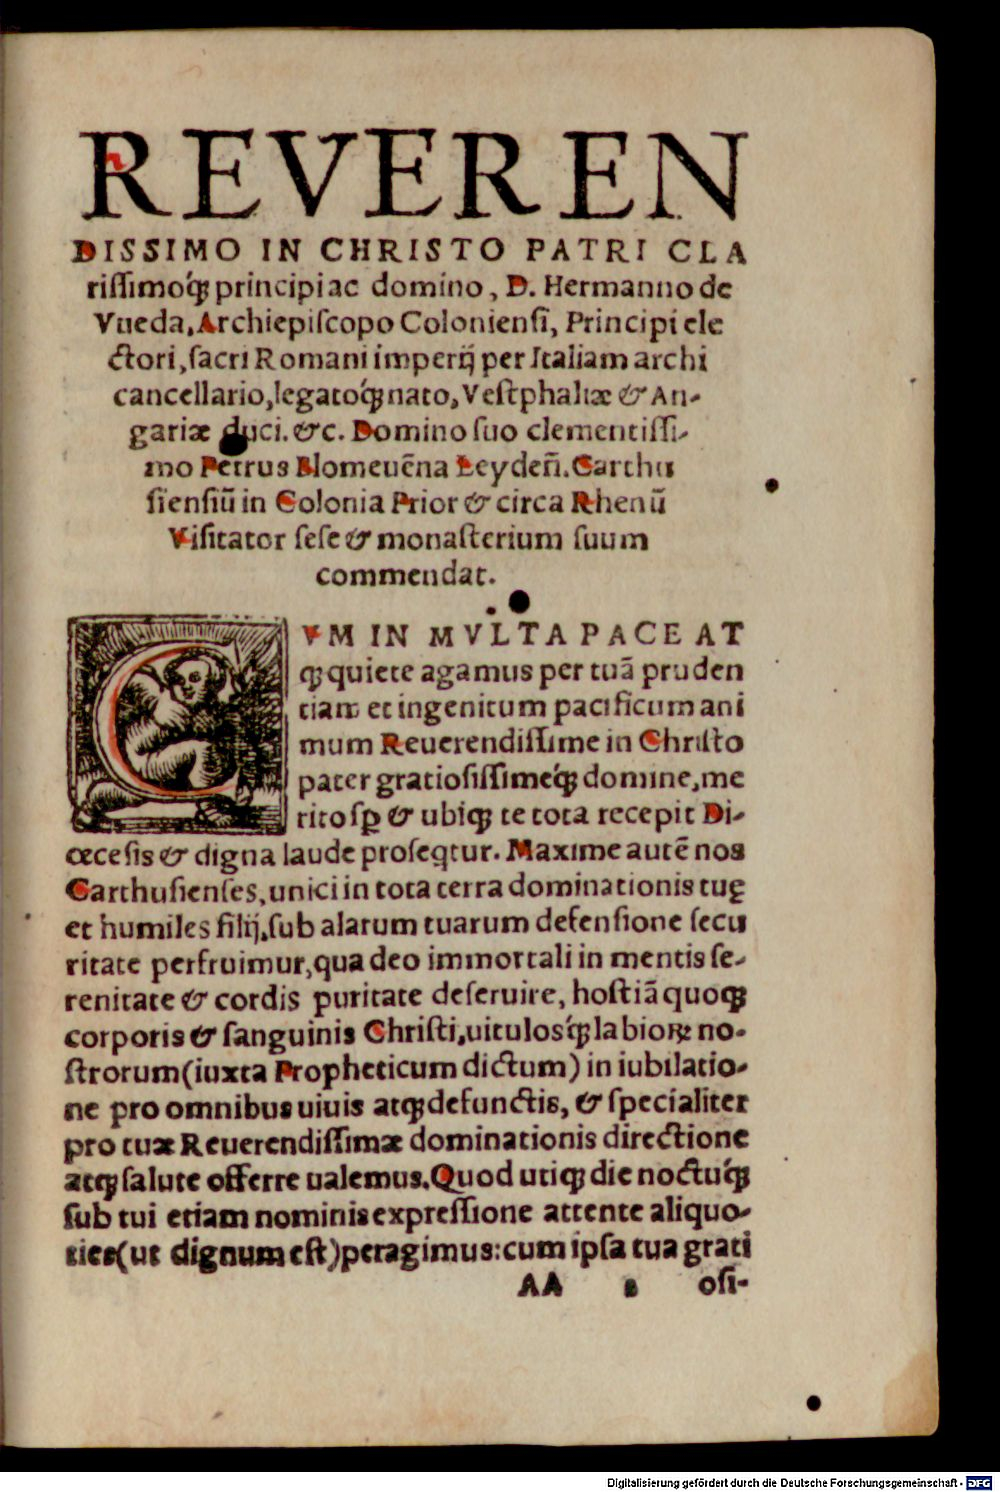 REVEREN
DISSIMO IN CHRISTO PATRI CLA
riſſimoq́; principi ac domino, D. Hermanno de
Vueda, Archiepiſcopo Colonienſi, Principi ele
ctori, ſacri Romani imperij per Italiam archi
cancellario, legatoq́; nato, Veſtphaliæ & An-
gariæ duci. &c. Domino ſuo clementiſſi-
mo Petrus Blomeuēna Leydeñ. Carthu
ſienſiū in Colonia Prior & circa Rhenū
Viſitator ſeſe & monaſterium ſuum
commendat.
CVM IN MVLTA PACE AT
q; quiete agamus per tuā pruden
tiam et ingenitum pacificum ani
mum Reuerendiſſime in Chriſto
pater gratioſiſſimeq́; domine, me
rito ſꝑ & ubiq; te tota recepit Di-
œceſis & digna laude proſeqtur. Maxime autē nos
Carthuſienſes, unici in tota terra dominationis tuę
et humiles filij, ſub alarum tuarum defenſione ſecu
ritate perfruimur, qua deo immortali in mentis ſe-
renitate & cordis puritate deſeruire, hoſtiā quoq;
corporis & ſanguinis Chriſti, uitulosq́; labioꝝ no-
ſtrorum (iuxta Propheticum dictum) in iubilatio-
ne pro omnibus uiuis atq; defunctis, & ſpecialiter
pro tuæ Reuerendiſſimæ dominationis directione
atq; ſalute offerre ualemus. Quod utiq; die noctuq́;
ſub tui etiam nominis expreſſione attente aliquo-
ties (ut dignum eſt) peragimus: cum ipſa tua grati
AA oſi-
Digitalisierung gefördert durch die Deutsche Forschungsgemeinschaft - DFG